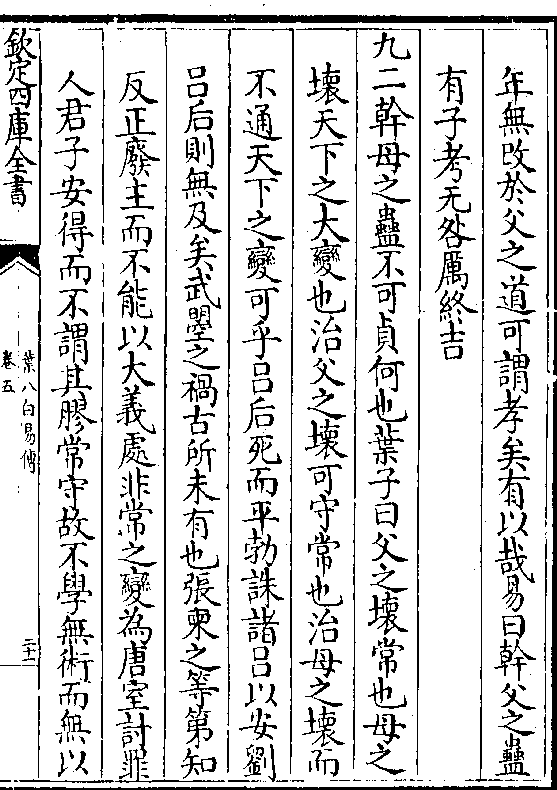 年無改於父之道可謂孝矣有以哉易曰幹父之蠱
有子考无咎厲終吉
九二幹母之蠱不可貞何也葉子曰父之壞常也母之
壞天下之大變也治父之壞可守常也治母之壞而
不通天下之變可乎吕后死而平勃誅諸吕以安劉
吕后則無及矣武曌之禍古所未有也張柬之等第知
反正廢主而不能以大義處非常之變為唐室計罪
人君子安得而不謂其膠常守故不學無術而無以
欽定四庫全書
葉八白易傳
卷五
三十一